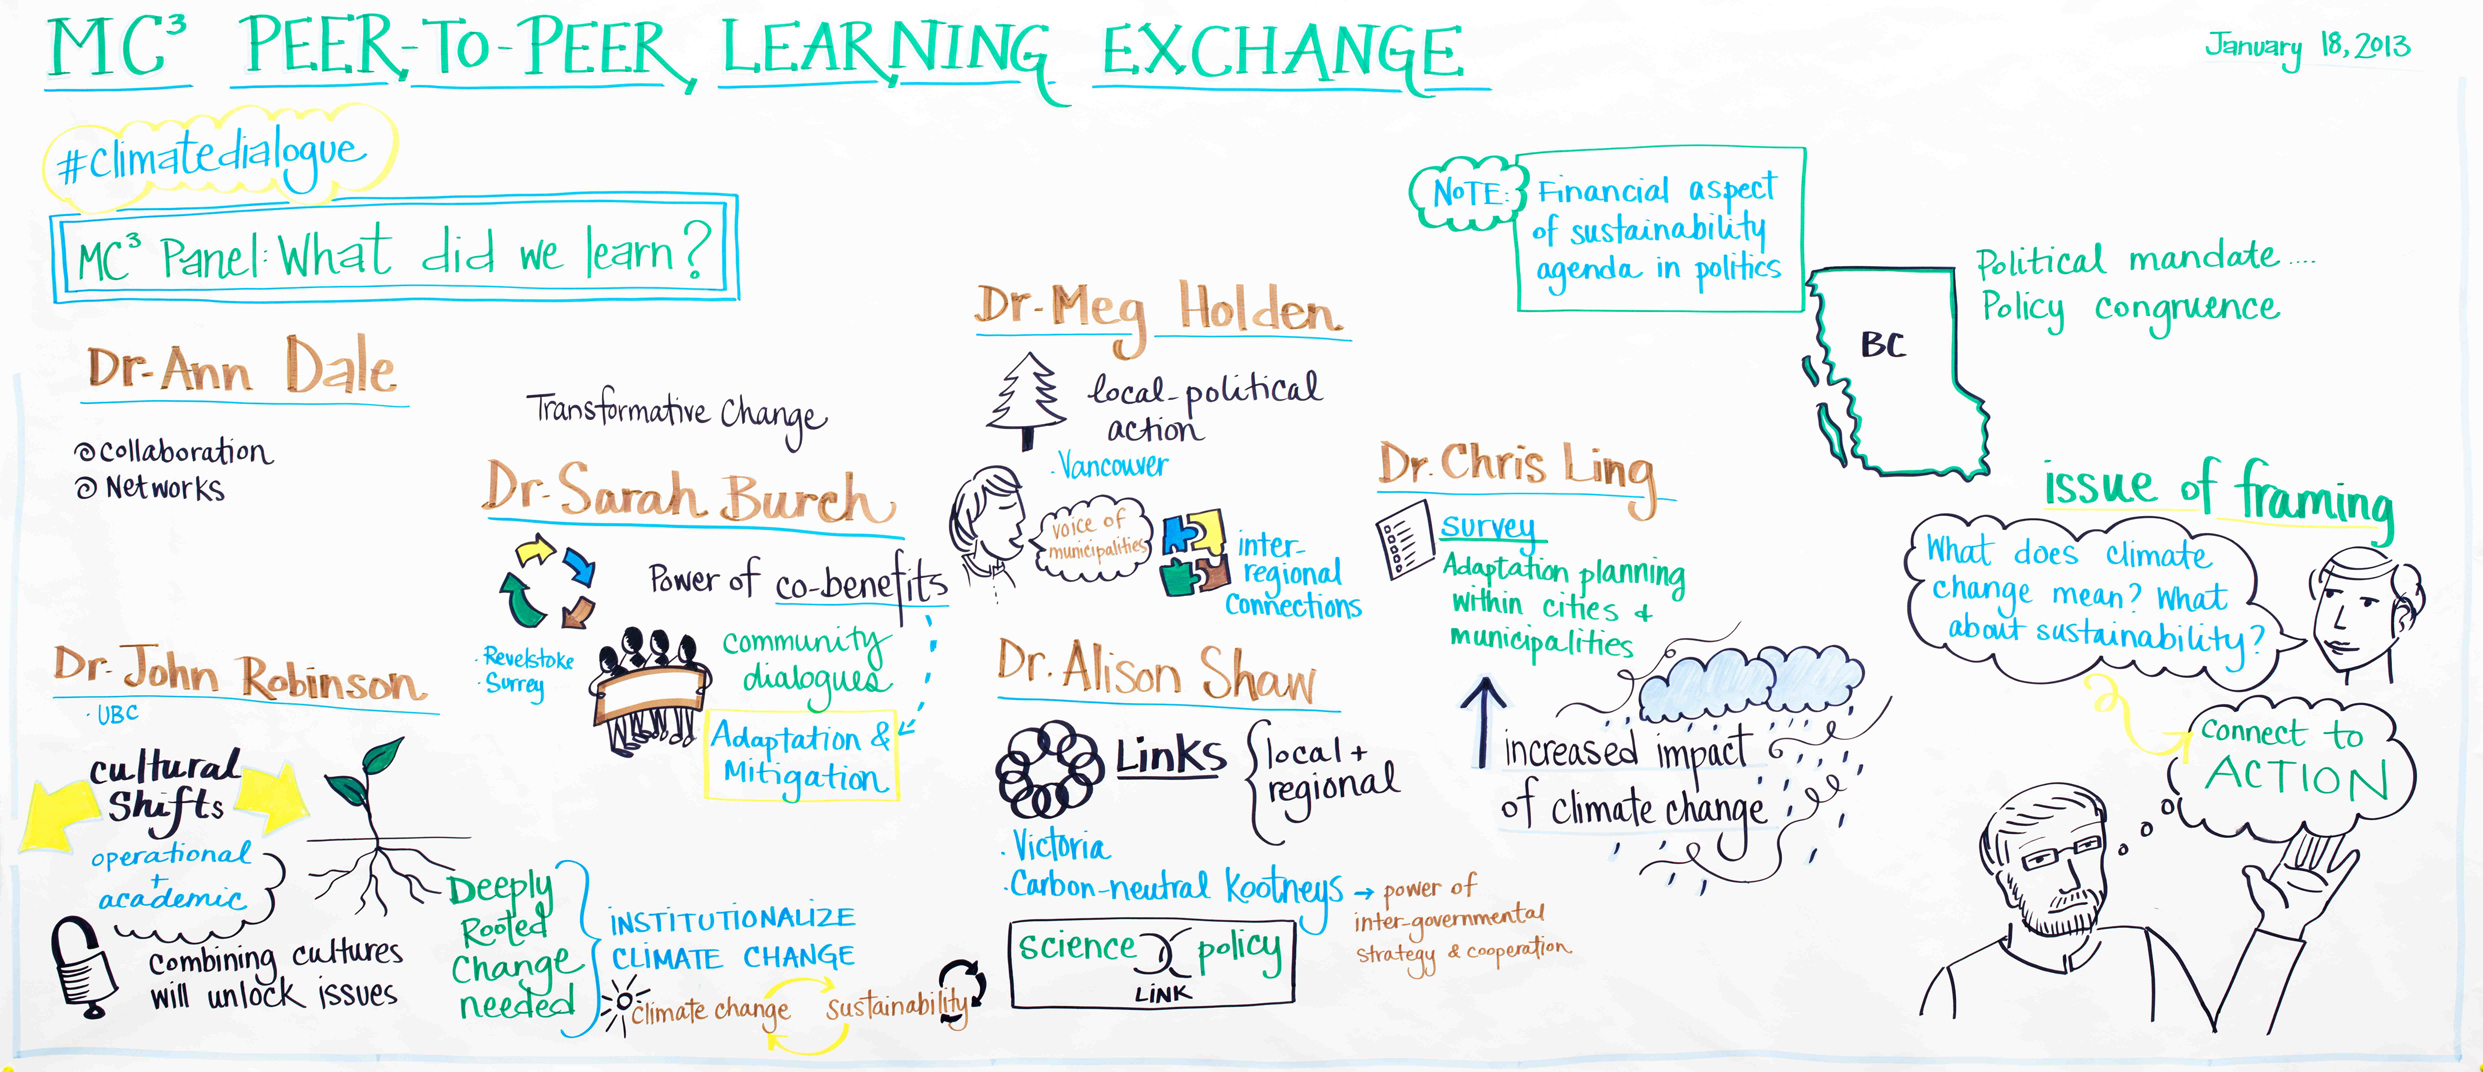 MC³ PEER-TO-PEER LEARNING EXCHANGE
January 18, 2013
#climatedialogue
MC³ Panel: What did we learn?
Dr. Ann Dale
Collaboration
Networks
Dr. John Robinson
· UBC
cultural
Shifts
operational
+
academic
combining cultures
will unlock issues
Deeply
Rooted
Change
needed
INSTITUTIONALIZE
CLIMATE CHANGE
climate change
sustainability
Transformative Change
Dr. Sarah Burch
Power of co-benefits
· Revelstoke
· Surrey
community
dialogues
Adaptation &
Mitigation
Dr. Meg Holden
local-political
action
· Vancouver
voice of
municipalities
inter-
regional
connections
Dr. Alison Shaw
Links
local +
regional
· Victoria
· Carbon-neutral Kootneys → power of
inter-governmental
strategy & cooperation
science policy
LINK
Dr. Chris Ling
survey
Adaptation planning
within cities &
municipalities
increased impact
of climate change
NOTE:
Financial aspect
of sustainability
agenda in politics
BC
Political mandate....
Policy congruence
issue of framing
What does climate
change mean? What
about sustainability?
connect to
ACTION